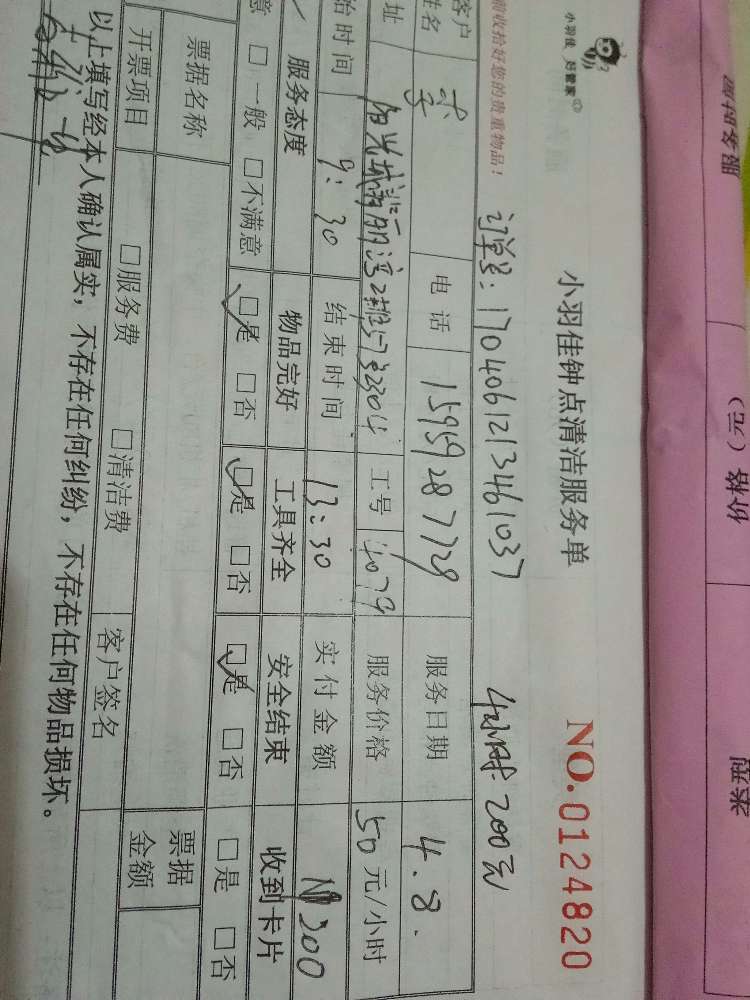 小羽佳 好管家
小羽佳钟点清洁服务单
NO.0124820
前收拾好您的贵重物品!
订单号:1704061213461037
4小时 200元
客户
姓名
电话
15959287729
服务日期
4.8.
址
工号
4079
服务价格
50元/小时
始时间
9:30
结束时间
13:30
实付金额
200
服务态度
物品完好
工具齐全
安全结束
收到卡片
意 □一般 □不满意
□是 □否
□是 □否
□是 □否
□是 □否
票据名称
票据
金额
开票项目
□服务费
□清洁费
客户签名
以上填写经本人确认属实,不存在任何纠纷,不存在任何物品损坏。
服务日期
价格(元)